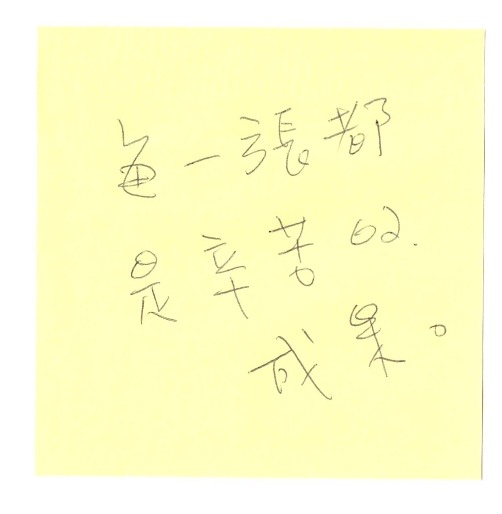 每一張都
是辛苦的
成果。